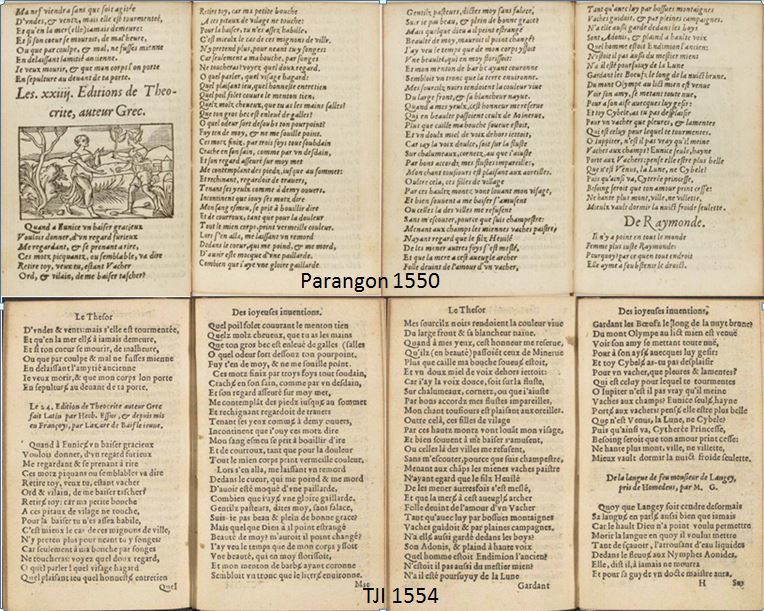 Ma nef viendra sans que soit agitée
D'vndes, & ventz, mais elle est tourmentée,
Et qu'en la mer (helle) iamais demeure:
Et si son cœur se mourroit, de malheure,
Ou que par coulpe, & mal, ne fusses mienne
En delaissant lamitié ancienne.
Ie veux mourir, & que mon corps l'on porte
En sepulture au deuant de ta porte.
Les. xxiiij. Editions de Theo-
crite, auteur Grec.
Quand a Eunice vn baiser gracieux
Voulois donner, d'vn regard furieux
Me regardant, & se prenant a rire,
Ces motz picquantz, ou semblable, va dire
Retire toy, veux tu, estant Vacher
Ord, & vilain, de me baiser tascher?
Retire toy, car ma petite bouche
A ces pitaux de vilage ne touche:
Pour la baiser, tu n'es assez habille.
C'est mieulx le cas de ces mignons de ville.
N'y pretend plus, pour neant tu y songes:
Car seulement a ma bouche, par songes
Ne toucheras: voyez quel doux regard.
O quel parler, quel visage hagard:
Quel plaisant ieu, quel honneste entretien
Quel poil folet couure le menton tien,
Quelz molz cheueux, que tu as les mains salles?
Que ton gros bec est enleué de galles?
O quel odeur sort desoubz ton pourpoint?
Fuy ten de moy, & ne me souille point.
Ces motz finiz, par trois foys tout soubdain
Crache en son sain, comme par vn desdain,
Et son regard asseuré sur moy met
Me contemplant des piedz, iusque au sommet:
Et rechignant, regardoit de trauers,
Tenans ses yeulx comme a demy ouuers.
Incontinent que iouy ses motz dire
Mon sang esmeu, se prit à bouillir dire
Et de courroux, tant que pour la douleur
Tout le mien corps print vermeille couleur.
Lors s'en alla, me laissant vn remord
Dedans le cœur, qui me poind, & me mord,
D'auoir este mocqué d'vne paillarde.
Combien que i'aye vne gloire gaillarde
Gentilz pasteurs, dictes moy sans falace,
Suis ie pas beau, & plein de bonne grace?
Mais quelque dieu a il point estrangé
Beaulté de moy, mauroit il point changé?
I'ay veu le temps que de mon corps yssoit
Vne beaulté, qui en moy florissoit:
Et mon menton de barbe ayant couronne
Sembloit vn tronc que la terre enuironne.
Mes sourcilz noirs tendoient la couleur viue
Du large front, & sa blancheur nayue.
Quand a mes yeux, c'est honneur me reserue
Qui en beaulte passoient ceux de Minerue,
Plus que caille ma bouche soueue estoit,
Et vn doulx miel de voix dehors iettoit:
Car iay la voix doulce, soit sur la fluste
Sur chalumeaux, cornetz, ou que i'auste
Par bons accordz, mes flustes impareilles,
Mon chant tousiours est plaisant aux aureilles.
Oultre cela, ces filles de village
Par ces haultz montz vont louant mon visage,
Et bien souuent a me baiser s'amusent
Ou celles la des villes me refusent
Sans m'escouter, pource que suis champestre:
Menant aux champs les miennes vaches paistre,
Nayant regard que le filz Heuilé
De les mener autres foys s'est meslé,
Et que la mere a ces aueugle archer
Folle deuint de l'amour d'vn vacher,
Tant qu'auec luy par bossues montaignes
Vaches guidoit, & par pleines campaignes.
N'a elle aussi garde dedans les boys
Sont Adonis, & plaind à haute voix
Quel homme estoit Endimion l'ancien:
N'estoit il pas aussi du mestier mien
N'a il esté poursuiuy de la Lune
Gardant les Bœufz, le long de la nuict brune.
Du mont Olympe au lict mien est venue
Voir son amy, se metant toute nue,
Pour a son aise auecques luy gesir:
Et toy Cybele, as tu pas desplaisir
Pour vn vacher que pleures, & lamentes?
Qui est celuy pour lequel te tourmentes.
O Iuppiter, n'est il pas vray qu'il meine
Vaches aux champs? Eunice seule, hayne
Porte aux Vachers: pense elle estre plus belle
Que n'est Venus, la Lune, ne Cybele?
Puis qu'ainsi va, Cytherée princesse,
Besoing seroit que ton amour print cesse:
Ne hante plus mont, ville, ne villette,
Mieulx vault dormir la nuict froide seulette.
De Raymonde.
Il n'y a point en tout le monde
Femme plus iuste Raymonde:
Pourquoy? par ce quen tout endroit
Elle ayme a soubstenir le droict.
Parangon 1550
Le Thesor
D'vndes & vents: mais s'elle est tourmentée,
Et qu'en la mer ellᵉ à iamais demeure,
Et si ton cœur se mourir, de malheure,
Ou que par coulpe & mal ne fusses mienne
En delaissant l'amytié ancienne
Ie veux mourir, & que mon corps lon porte
En sepulture au deuant de ta porte.
Le 24. Edition de Theocrite auteur Grec
fait Latin par Heob. Essue, & depuis mis
en Françoys, par Lazare de Baïf selsieuue.
Quand à Eunice vn baiser gracieux
Voulois donner, d'vn regard furieux
Me regardant & se prenant à rire
Ces motz piquans ou semblables va dire
Retire toy, veux tu, estant vacher
Ord & vilain, de me baiser tascher?
Retire toy: car ma petite bouche
A ces pitaux de village ne touche,
Pour la baiser tu n'es assez habile,
C'est mieux le cas de ces mignons de ville,
N'y pretens plus pour neant tu y songes:
Car seulement à ma bouche par songes
Ne toucheras: voyez quel doux regard,
O quel parler! quel visage hagard
Quel plaisant ieu quel honneste entretien
Quel
Des ioyeuses inuentions.
Quel poil folet couurant le menton tien
Quelz molz cheueux, que tu as les mains
Que ton gros bec est enleué de galles (salles
O quel odeur sort dessouz ton pourpoint.
Fuy t'en de moy, & ne me souille point.
Ces motz finiz par troys foys tout soudain,
Crachᵉ en son sain, comme par vn desdain,
Et son regard asseuré sur moy met,
Me contemplat des piedz iusque au sommet
Et rechignant regardoit de trauers
Tenant ses yeux comme à demy ouuers,
Incontinent que i'ouy ces motz dire
Mon sang esmeu se prit à bouillir d'ire
Et de courroux, tant que pour la douleur
Tout le mien corps print vermeille couleur,
Lors s'en alla, me laissant vn remord
Dedans le cueur, qui me poind & me mord
D'auoir esté moqué d'vne paillarde,
Combien que i'ays vne gloire gaillarde,
Gentilz pasteurs, dites moy, sans falace,
Suis-ie pas beau & plein de bonne grace?
Mais quelque Dieu à il point estrangé
Beauté de moy? m'auroit il point changé?
I'ay veu le temps que de mon corps yssoit
Vne beauté, qui en moy florissoit,
Et mon menton de barbe ayant coronne
Sembloit vn tronc que le lierre enuironne.
Mes
Le Thesor
Mes sourcilz noirs tendoient la couleur viue
Du large front & sa blancheur naïue.
Quand à mes yeux, cest honneur me reserue,
Qu'ilz (en beauté) passoient ceux de Minerue
Plus que caille ma bouche soueue estoit,
Et vn doux miel de voix dehors iettoit:
Car i'ay la voix douce, soit sur la fluste,
Sur chalumeaux, cornetz, ou que i'aiuste
Par bons accordz mes flustes impareilles,
Mon chant tousiours est plaisant aux oreilles.
Outre celà, ces filles de vilage
Par ces hautz montz vont louant mon visage,
Et bien souuent à me baiser s'amusent,
Ou celles là des villes me refusent,
Sans m'escouter, pource que suis champestre,
Menant aux chāps les mienes vaches paistre
N'ayant egard que le filz Heuilé
De les mener autresfois s'est meslé,
Et que la merᵉ à cest aueuglᵉ archer
Folle deuint de l'amour d'vn Vacher,
Tant qu'auec luy par bossues montaignes
Vaches guidoit & par plaines campagnes.
N'à ellᵉ aussi gardé dedans les boys
Son Adonis, & plaind à haute voix
Quel homme estoit Endimion l'ancien?
N'estoit il pas aussi du mestier mien?
N'à il esté poursuyuy de la Lune
Gardant
Des ioyeuses inuentions,
Gardant les Bœufz le long de la nuyt brune?
Du mont Olympe au lict mien est venuë
Voir son amy se mettant toute nuë,
Pour à son ayse auecques luy gesir:
Et toy Cybele as-tu pas desplaisir
Pour vn vacher, que pleures & lamentes?
Qui est celuy pour lequel te tourmentes
O Iupiter n'est il pas vray qu'il meine
Vaches aux champs? Eunice seulᵉ, hayne
Portᵉ aux vachers: pensᵉ elle estre plus belle
Que n'est Venus, la Lune, ne Cybele?
Puis qu'ainsi va, Cytherée Princesse,
Besoing seroit que ton amour print cesse:
Ne hante plus mont, ville, ne villette,
Mieux vault dormir la nuict froide seulette.
De la langue de feu monsieur de Langey,
pris de Homedeus, par M. G.
Quoy que Langey soit cendre desormais
Sa langue en parlᵉ aussi bien que iamais
Car le hault Dieu n'a point voulu permettre
Morir la langue en quoy il voulut mettre
Tant de sçauoir, l'arrousant d'eau liquides
Dedans le fleuue aux Nymphes Aonides,
Elle, dist il, à iamais ne mourra
Et pour sa guy de vn maistre aura,
H Suy
TJI 1554